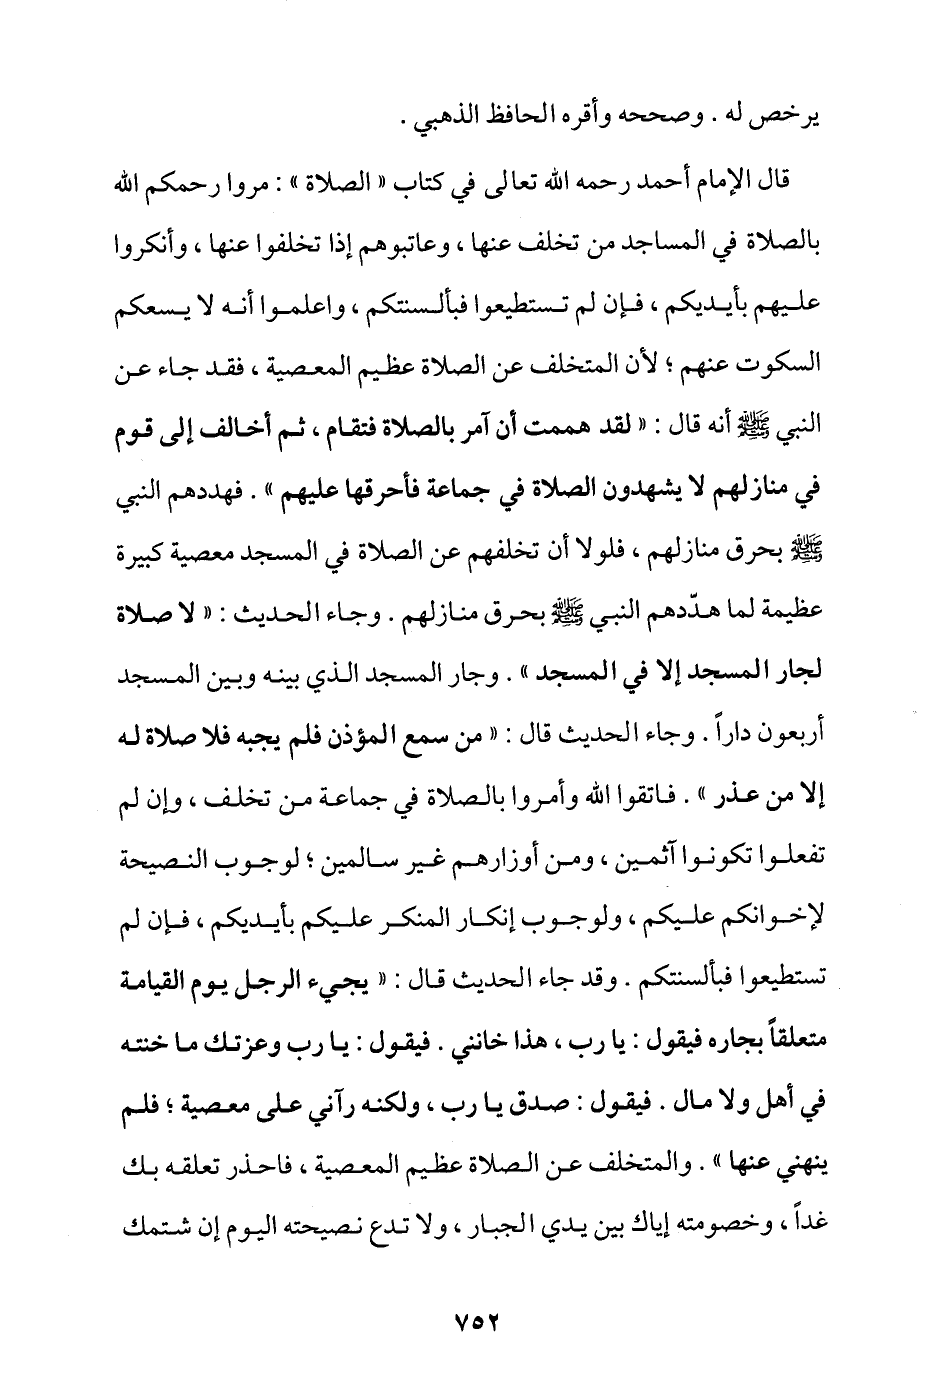 يرخص له . وصححه وأقره الحافظ الذهبي .
قال الإمام أحمد رحمه الله تعالى في كتاب « الصلاة » : مروا رحمكم الله
بالصلاة في المساجد من تخلف عنها ، وعاتبوهم إذا تخلفوا عنها ، وأنكروا
عليهم بأيديكم ، فإن لم تستطيعوا فبألسنتكم ، واعلموا أنه لا يسعكم
السكوت عنهم ؛ لأن المتخلف عن الصلاة عظيم المعصية ، فقد جاء عن
النبي ﷺ أنه قال : « لقد هممت أن آمر بالصلاة فتقام ، ثم أخالف إلى قوم
في منازلهم لا يشهدون الصلاة في جماعة فأحرقها عليهم » . فهددهم النبي
ﷺ بحرق منازلهم ، فلولا أن تخلفهم عن الصلاة في المسجد معصية كبيرة
عظيمة لما هدّدهم النبي ﷺ بحرق منازلهم . وجاء الحديث : « لا صلاة
لجار المسجد إلا في المسجد » . وجار المسجد الذي بينه وبين المسجد
أربعون داراً . وجاء الحديث قال : « من سمع المؤذن فلم يجبه فلا صلاة له
إلا من عذر » . فاتقوا الله وأمروا بالصلاة في جماعة من تخلف ، وإن لم
تفعلوا تكونوا آثمين ، ومن أوزارهم غير سالمين ؛ لوجوب النصيحة
لإخوانكم عليكم ، ولوجوب إنكار المنكر عليكم بأيديكم ، فإن لم
تستطيعوا فبألسنتكم . وقد جاء الحديث قال : « يجيء الرجل يوم القيامة
متعلقاً بجاره فيقول : يا رب ، هذا خانني . فيقول : يا رب وعزتك ما خنته
في أهل ولا مال . فيقول : صدق يا رب ، ولكنه رآني على معصية ؛ فلم
ينهني عنها » . والمتخلف عن الصلاة عظيم المعصية ، فاحذر تعلقه بك
غداً ، وخصومته إياك بين يدي الجبار ، ولا تدع نصيحته اليوم إن شتمك
٧٥٢